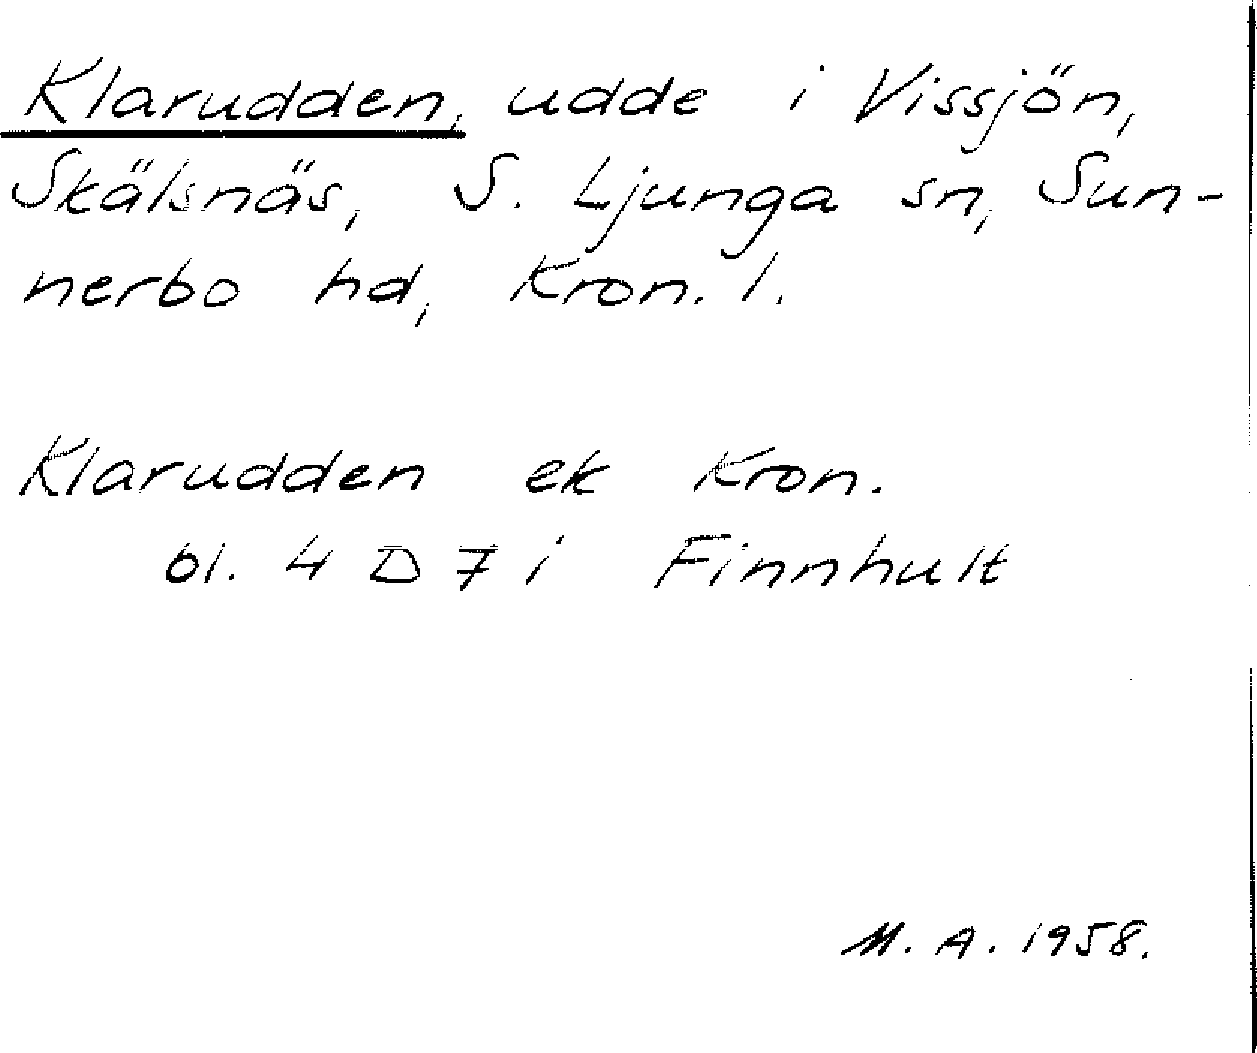 Klarudden, udde i Vissjön,
Skälsnäs, S. Ljunga sn, Sun-
nerbo hd, Kron. l.
Klarudden ek Kron.
bl. 4 D 7 i Finnhult
M. A. 1958.